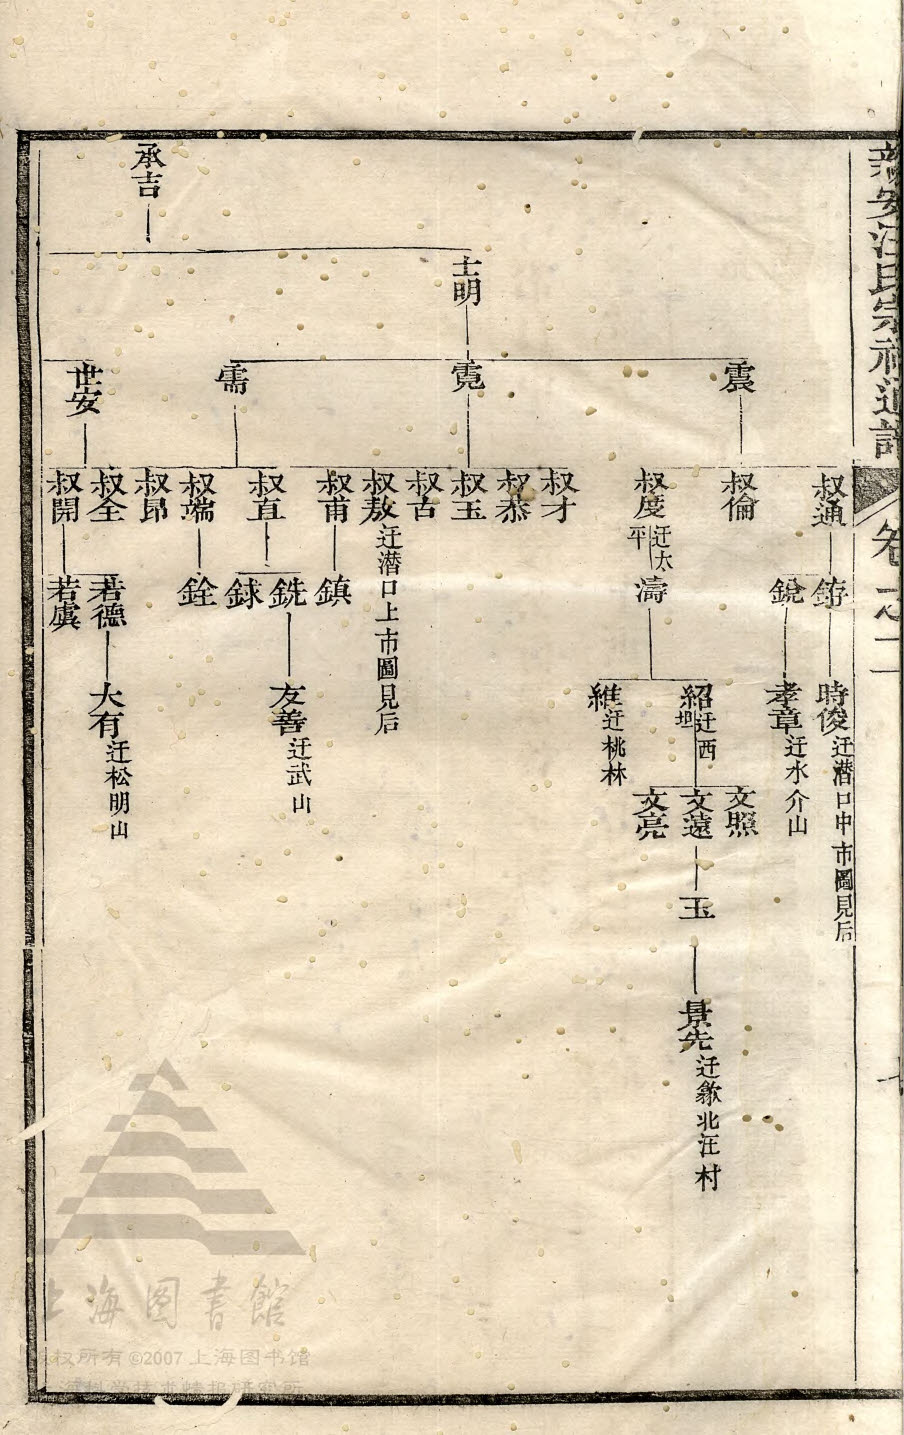 新安汪氏宗祠通譜
卷之二
七
承吉
士明
震
霓
霱
世安
叔通
叔倫
叔度 迁太平
叔才
叔恭
叔玉
叔古
叔敖 迁潛口上市圖見后
叔甫
叔直
叔端
叔昂
叔全
叔開
銳
濤
鎮
銑
銶
銓
若德
若虞
時俊 迁潛口中市圖見后
孝章 迁水介山
紹 迁西坦
維 迁桃林
友善 迁武山
大有 迁松明山
文照
文遠
文亮
玉
景先 迁歙北汪村
上海图書館
权所有 ©2007 上海图书馆